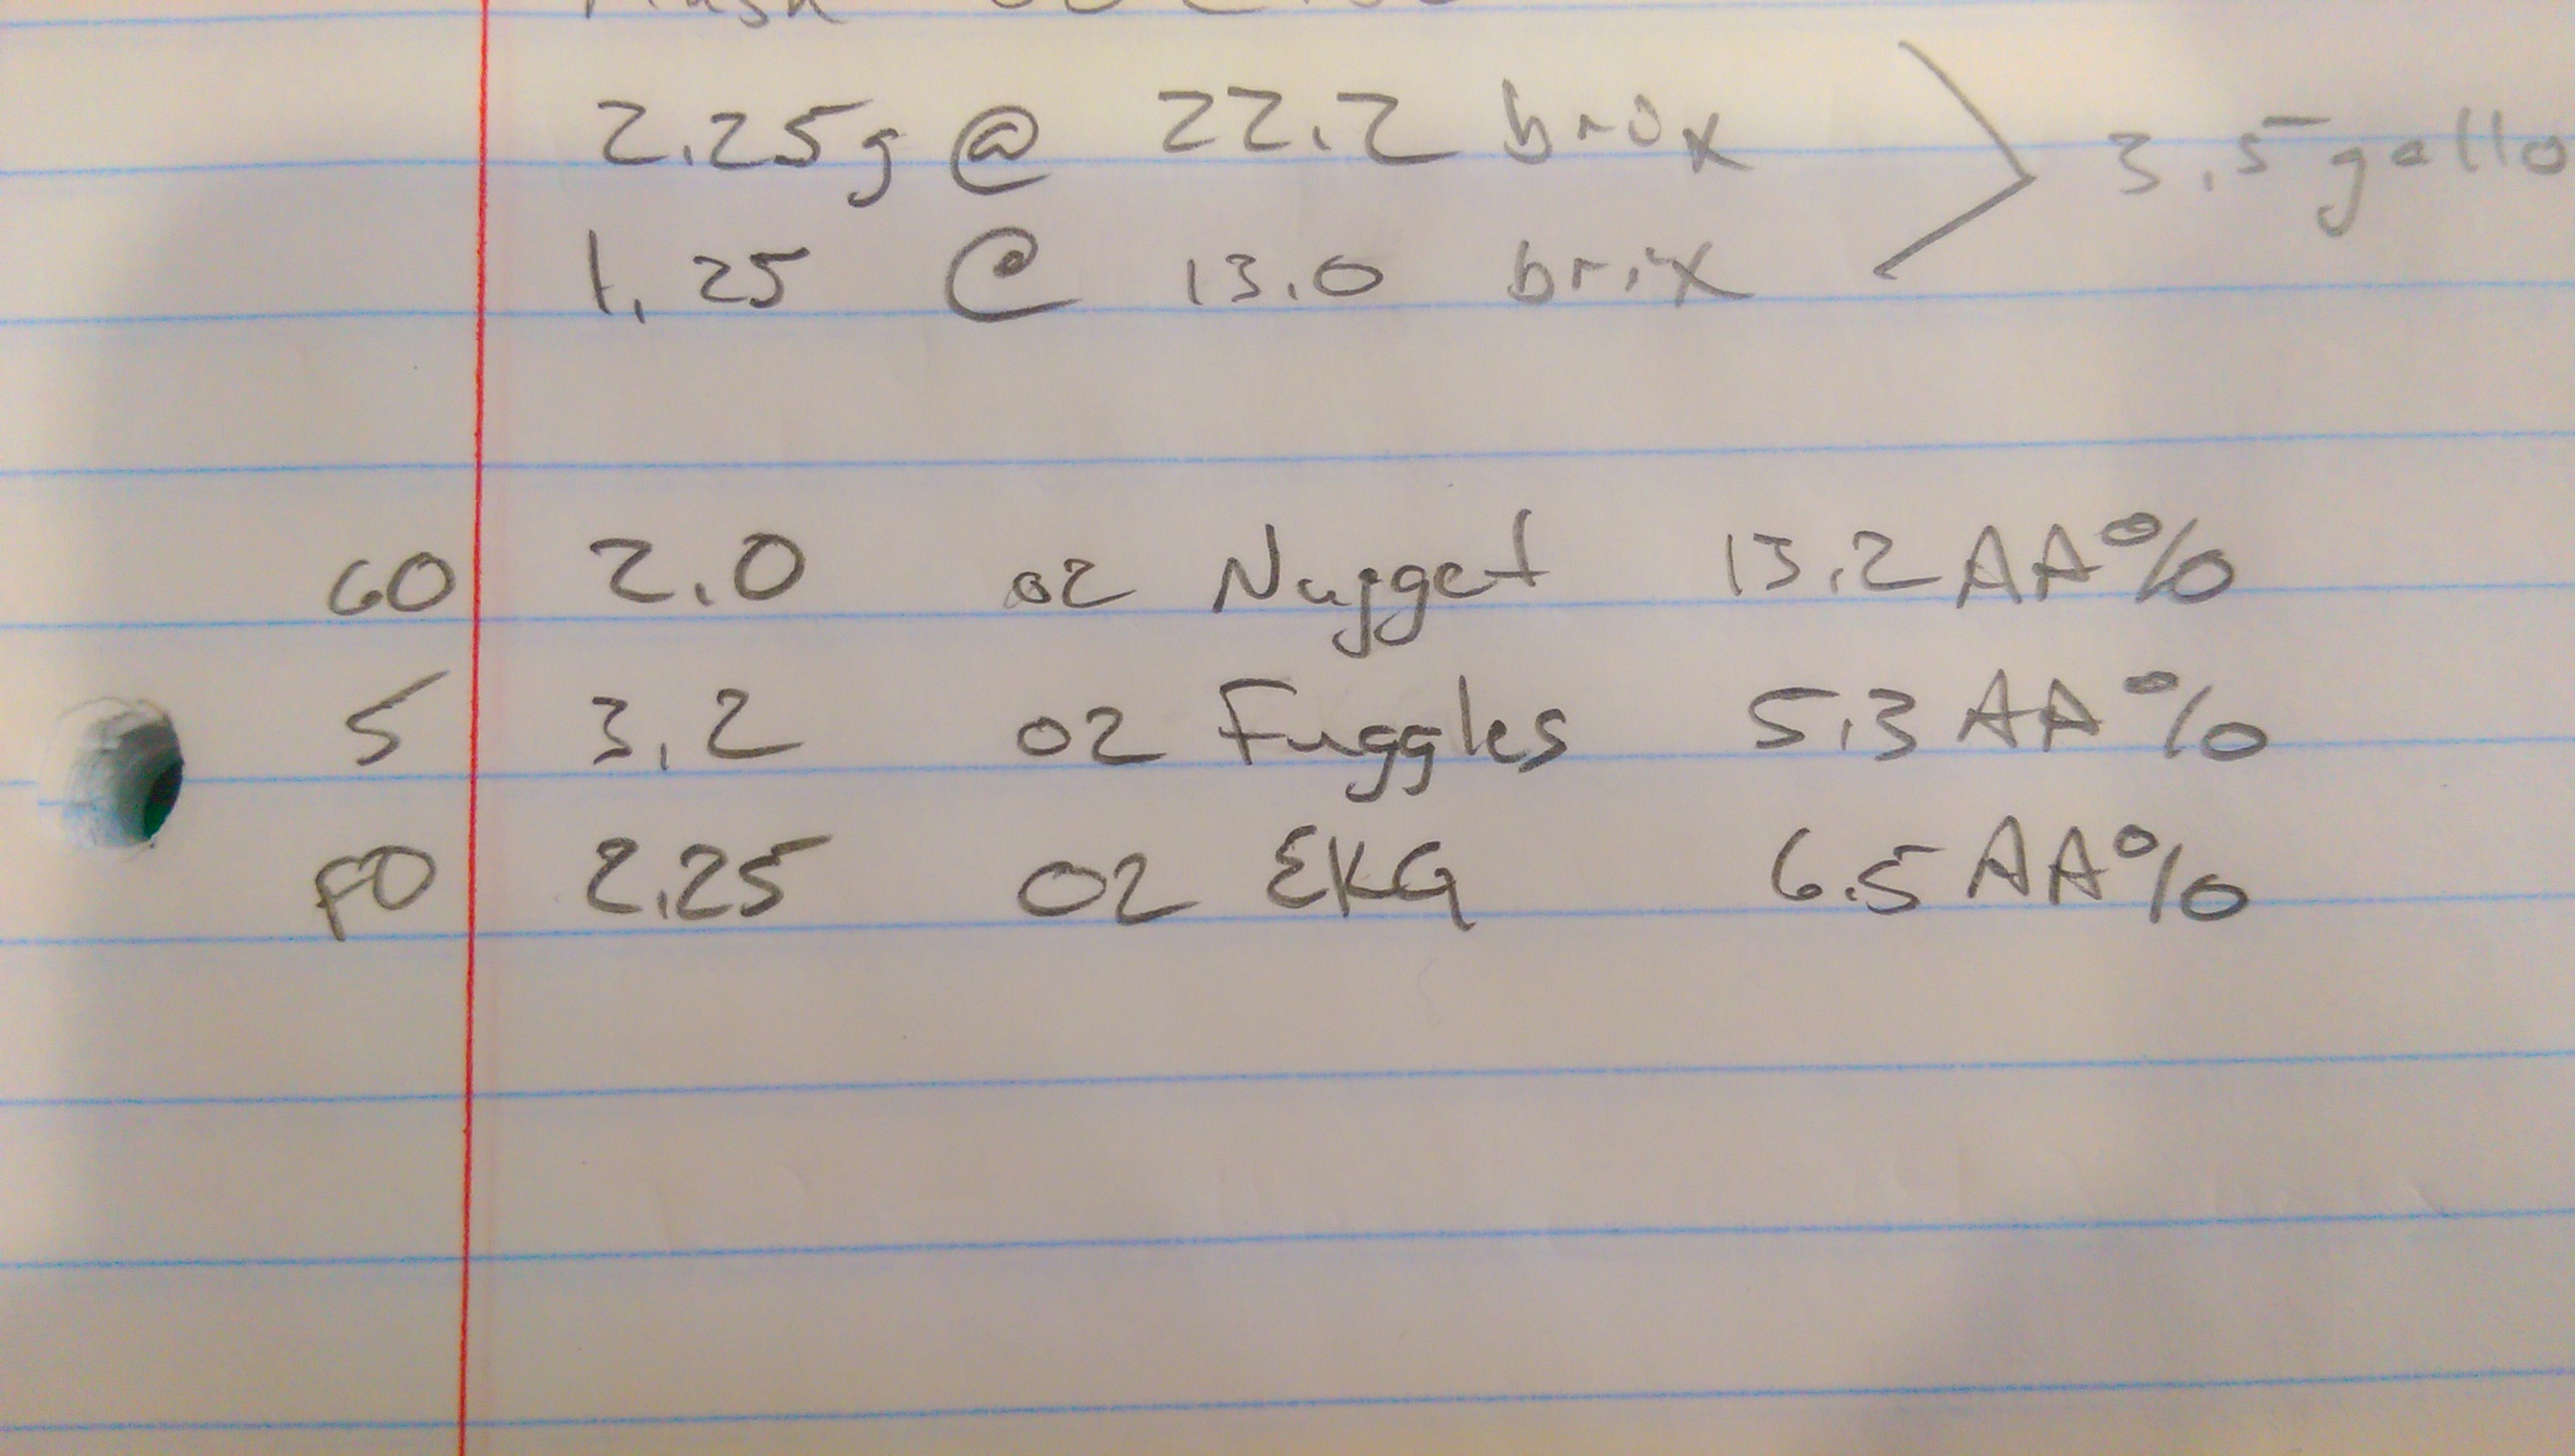 2.25g @ 22.2 brix
1.25 @ 13.0 brix
3.5 gallo
60 2.0 oz Nugget 13.2 AA%
5 3.2 oz Fuggles 5.3 AA%
FO 2.25 oz EKG 6.5 AA%